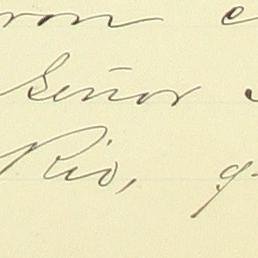 ron
Señor
Rio,